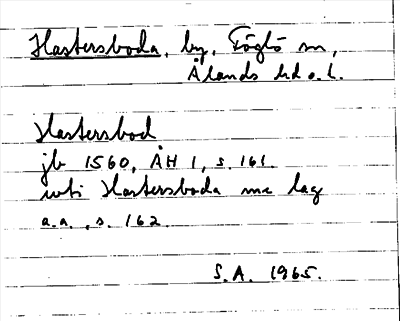 Hastersboda, by, Föglö sn,
Ålands hd o. l.
Hastersbod
jb 1560, ÅH 1, s. 161
uti Hastersboda me lag
a.a., s. 162
S.A. 1965.